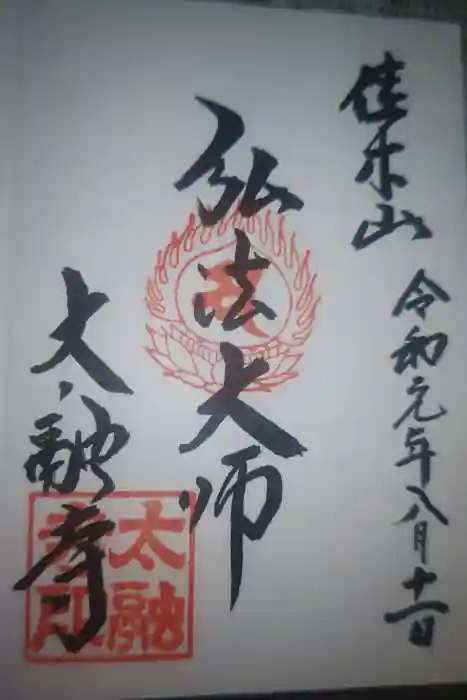 佳木山
令和元年八月十一日
弘法大師
太融寺
太融寺印